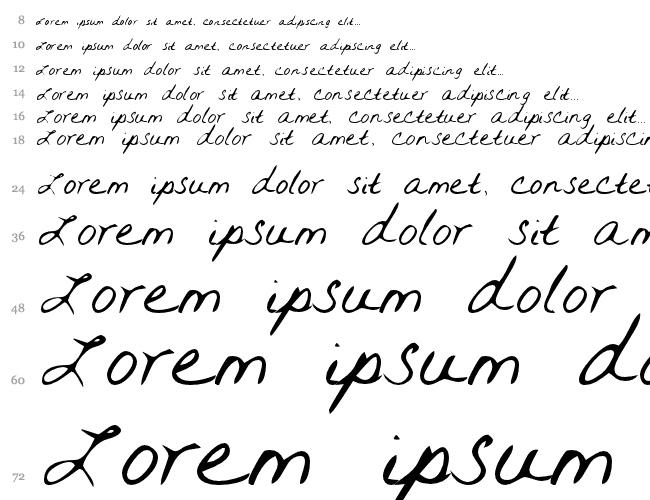 8 Lorem ipsum dolor sit amet, consectetuer adipiscing elit...
10 Lorem ipsum dolor sit amet, consectetuer adipiscing elit...
12 Lorem ipsum dolor sit amet, consectetuer adipiscing elit...
14 Lorem ipsum dolor sit amet, consectetuer adipiscing elit...
16 Lorem ipsum dolor sit amet, consectetuer adipiscing elit...
18 Lorem ipsum dolor sit amet, consectetuer adipiscin
24 Lorem ipsum dolor sit amet, consectet
36 Lorem ipsum dolor sit am
48 Lorem ipsum dolor
60 Lorem ipsum do
72 Lorem ipsum